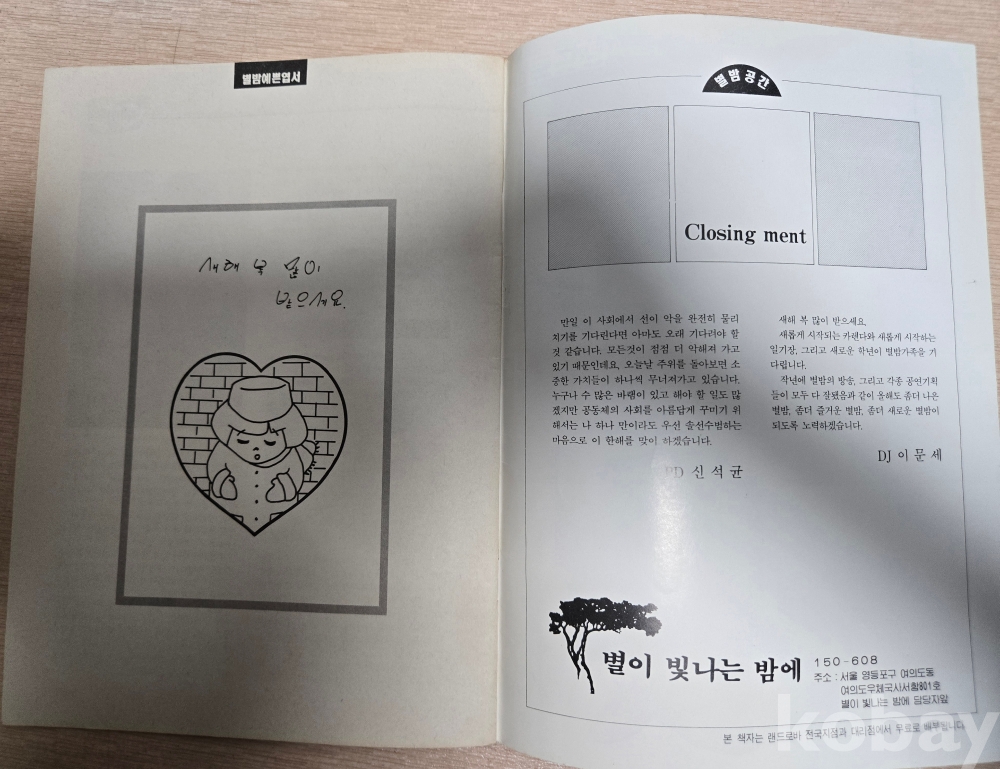 별밤예쁜엽서
새해 복 많이
받으세요.
별밤공간
Closing ment
만일 이 사회에서 선이 악을 완전히 물리
치기를 기다린다면 아마도 오래 기다려야 할
것 같습니다. 모든것이 점점 더 악해져 가고
있기 때문인데요, 오늘날 주위를 돌아보면 소
중한 가치들이 하나씩 무너져가고 있습니다.
누구나 수 많은 바램이 있고 해야 할 일도 많
겠지만 공동체의 사회를 아름답게 꾸미기 위
해서는 나 하나 만이라도 우선 솔선수범하는
마음으로 이 한해를 맞이 하겠습니다.
PD 신 석 균
새해 복 많이 받으세요.
새롭게 시작되는 카렌다와 새롭게 시작하는
일기장, 그리고 새로운 학년이 별밤가족을 기
다립니다.
작년에 별밤의 방송, 그리고 각종 공연기획
들이 모두 다 잘됐음과 같이 올해도 좀더 나은
별밤, 좀더 즐거운 별밤, 좀더 새로운 별밤이
되도록 노력하겠습니다.
DJ 이 문 세
별이 빛나는 밤에
150-608
주소 : 서울 영등포구 여의도동
여의도우체국사서함801호
별이 빛나는 밤에 담당자앞
본 책자는 랜드로바 전국지점과 대리점에서 무료로 배부됩니다.
kobay